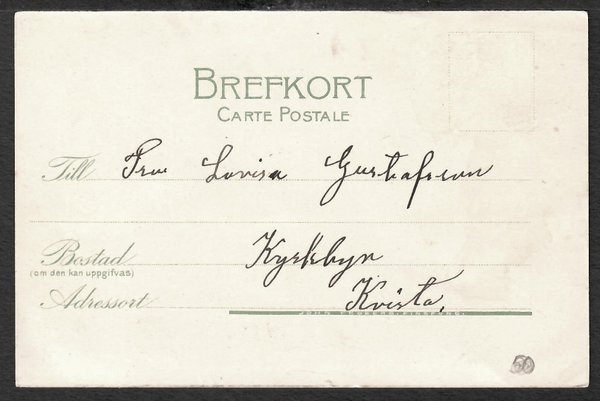 BREFKORT
CARTE POSTALE
Till Fru Lovisa Gustafsson
Bostad Kyrkbyn
(om den kan uppgifvas)
Adressort Kvista,
JOHN FROBERG, FINSPONG.
50